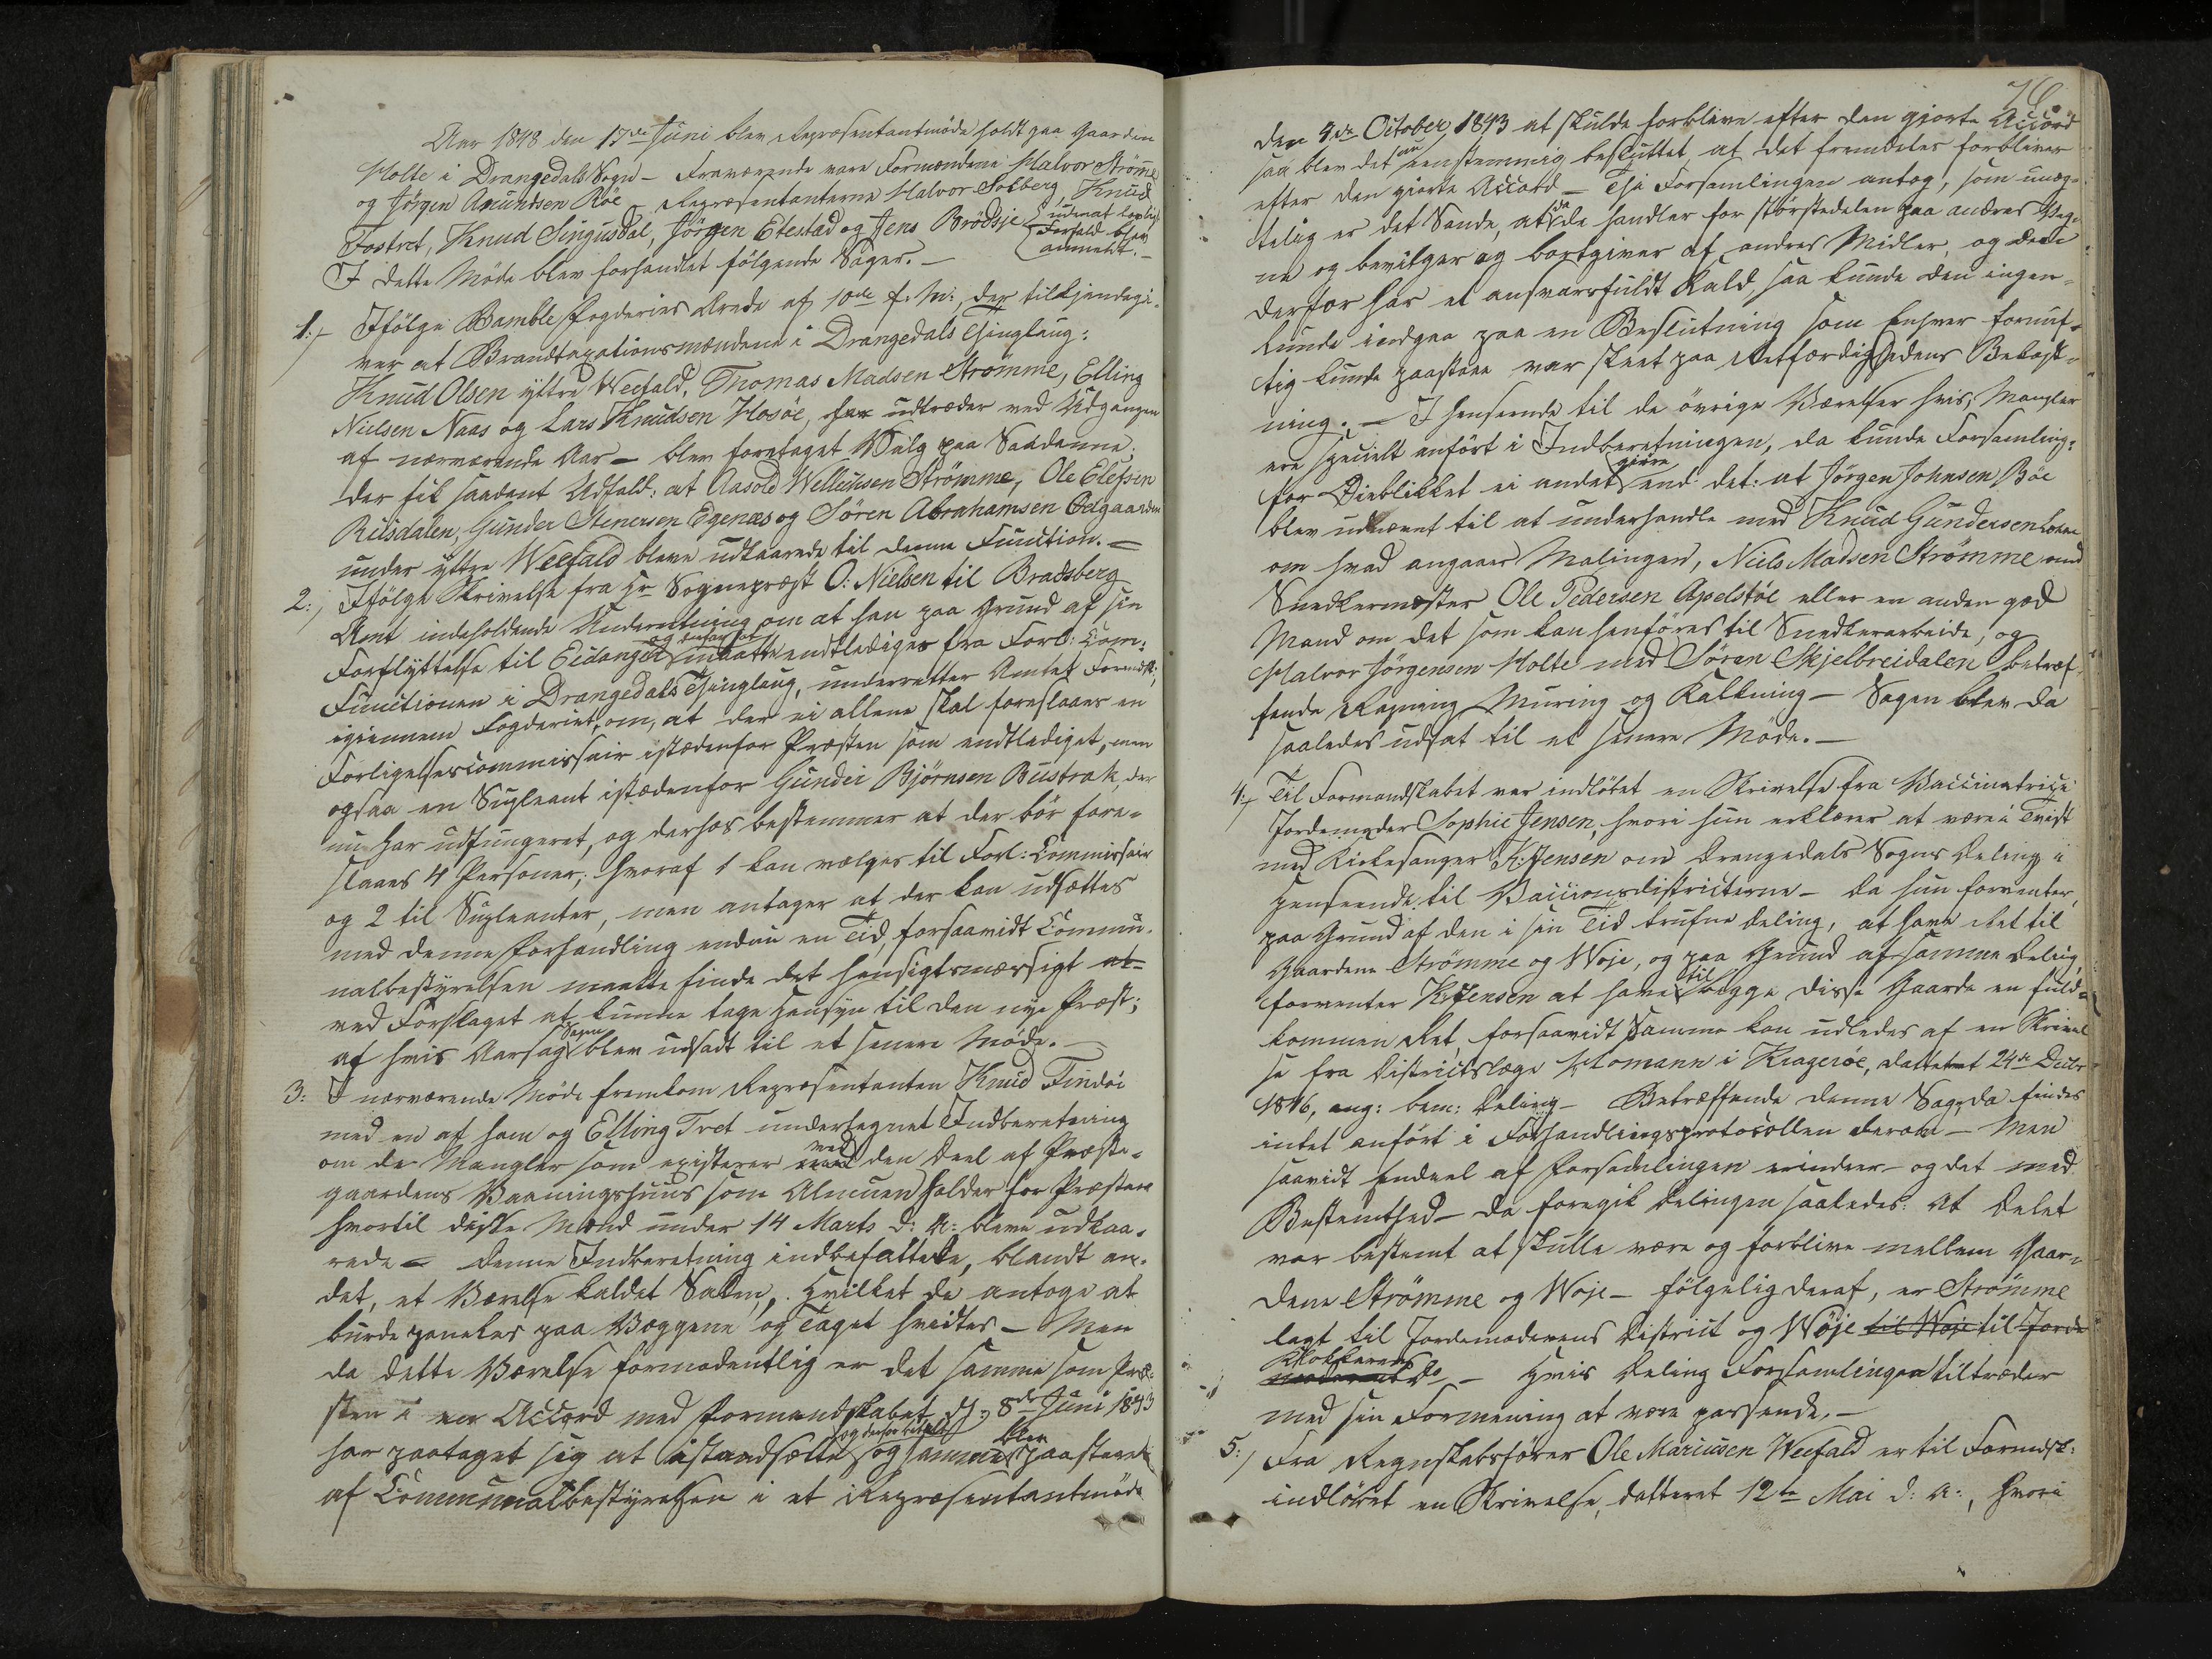 Aar 1848 den 17de Juni blev Repræsentantmøde holdt paa Gaarden
Holte i Drangedals Sogn – Fraværende vare Formændene Halvor Strømme
og Jørgen Amundsen Røe – Repræsentanterne Halvor Solberg, Knud
Fostvet, Knud Singusdal, Jørgen Etestad og Jens Brødsje udenat lovligt
Forfald blev
anmeldt. –
I dette Møde blev forhandlet følgende Sager. –
1:, Ifølge Bamble Fogderies Brev af 10de f. M:, der tilkjendegi-
ver at Brandtaxationsmændene i Drangedals Thinglaug:
Knud Olsen yttre Weefald, Thomas Madsen Strømme, Elling
Nielsen Naas og Lars Knudsen Hosøe, udtræder ved Udgangen
af nærværende Aar – blev foretaget Valg paa Saadanne,
der fik saadant Udfald: at Aasold Wellumsen Strømme, Ole Elefsen
Riisdalen, Gunder Stenersen Egenæs og Søren Abrahamsen Ødegaarden
under yttre Weefald bleve udkaarede til denne Function. –
2:, Ifølge Skrivelse fra Hr Sognepræst O: Nielsen til Bradsberg
Amt indeholdende Underretning om at han paa Grund af sin
og ønsker at
Forflyttelse til Eidanger maatte endtlediges fra Forl: Com:
Functionen i Drangedals Thinglaug, underretter Amtet Formdsk:,
igiennem Fogderiet, om, at der ei allene skal foreslaaes en
Forligelsescommissair istædenfor Præsten som endtlediget, men
ogsaa en Supleant istædenfor Gunder Bjørnsen Bustrak, der
nu har udfungeret, og derhos bestemmer at der bør fore-
slaaes 4 Personer, hvoraf 1 kan vælges til Forl: Commissair
og 2 til Supleanter, men antager at der kan udsættes
med denne Forhandling endnu en Tid, forsaavidt Commu-
nalbestyrelsen maatte finde det hensigtsmæssigt at
ved Forslaget at kunne tage Hensyn til den nye Præst;
Sagen
af hvis Aarsag blev udsadt til et senere Møde. –
3: I nærværende Møde fremkom Repræsentanten Knud Findøe
med en af ham og Elling Tvet undertegnet Indberetning
ved
om de Mangler som existerer den Deel af Præste-
gaardens Vaaningshuus som Almuen holder for Præsten
hvortil disse Mænd under 14 Marts d: A: bleve udkaa-
rede – Denne Indberetning indbefattede, blandt an-
det, et Værelse kaldet Salen, hvilket de antoge at
burde paneles paa Væggene og Taget hvidtes – Men
da dette Værelse formodentlig er det samme som Præ-
sten i en Accord med Formandskabet, d: 8de Juni 1843
og derfor betalt blev
har paataget sig at istandsætte og samme paastaaet
af Communalbestyrelsen i et Repræsentantmøde
76.
den 4de October 1843 at skulde forblive efter den gjorte Accord
nu
saa blev det eenstemmig besluttet, at det fremdeles forbliver
efter den gjorte Accord – Thi Forsamlingen antog, som unæg-
da
telig er det Sande, at de handler for størstedelen paa andres Veg-
ne og bevilger og bortgiver af andres Midler, og dem
derfor har et ansvarsfuldt Kald, saa kunde den ingen-
lunde indgaa paa en Beslutning som Enhver fornuf-
tig kunde paastaae var skeet paa Retfærdighedens Bekost-
ning. – I Henseende til de øvrige Værelser hvis Mangler
ere specielt anført i Indberetningen, da kunde Forsamling:
gjøre
for Øieblikket ei andet end det: at Jørgen Johnsen Bøe
blev udnævnt til at underhandle med Knud Gundersen
om hvad angaaer Malingen, Niels Madsen Strømme med
Snedkermester Ole Pedersen Apelstøe eller en anden god
Mand om det som kan henføres til Snedkerarbeide, og
Halvor Jørgensen Holte med Søren Skjelbreidalen betræf-
fende Rapning Muring og Kalkning – Sagen blev da
saaledes udsat til et senere Møde. –
4:, Til Formandskabet var indløbet en Skrivelse fra Vaccinatrice
Jordemoder Sophie Jensen, hvori hun erklærer at være i Tvist
med Kirkesanger K: Jensen om Drangedals Sogns Deling i
Henseende til Vaccionsdistricterne – da hun formenter,
paa Grund af den i sin Tid trufne Deling, at have Ret til
Gaardene Strømme og Woje, og paa Grund af samme Deling,
til
formenter K: Jensen at have begge disse Gaarde en fuld-
kommen Ret, forsaavidt Samme kan udledes af en Skrivel-
se fra Districtslæge Homann i Kragerøe, datteret 24de Decbr
1846, ang: bem: Deling – Betræffende denne Sag, da findes
intet anført i Forhandlingsprotocollen derom – Men
saavidt Endeel af Forsamlingen erindrer – og det med
Bestemthed – da foregik Delingen saaledes: At Delet
var bestemt at skulle være og forblive mellem Gaar-
dene Strømme og Woje – følgelig deraf, er Strømme
lagt til Jordemoderens District og Woje til Woje til Jorde
Klokkerens
moderens do – Hvis Deling Forsamlingen tiltræder
med sin Formening at være passende. –
5:, Fra Regnskabsfører Ole Mariusen Weefald er til Formdsk:
indløbet en Skrivelse, datteret 12te Mai d: A:, hvori